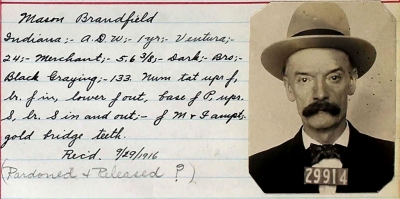 Mason Brandfield
Indiana;- A.D.W;- 1 yr;- Ventura;-
24;- Merchant;- 5.6 3/8;- Dark;- Bro;-
Black Graying;- 133. Num tat upr f,
br. f in, lower f out, base f P, upr.
S, br. S in and out;- f M & I ampt;
gold bridge teeth.
Rec'd. 9/29/1916
(Pardoned & Released ?)
29914